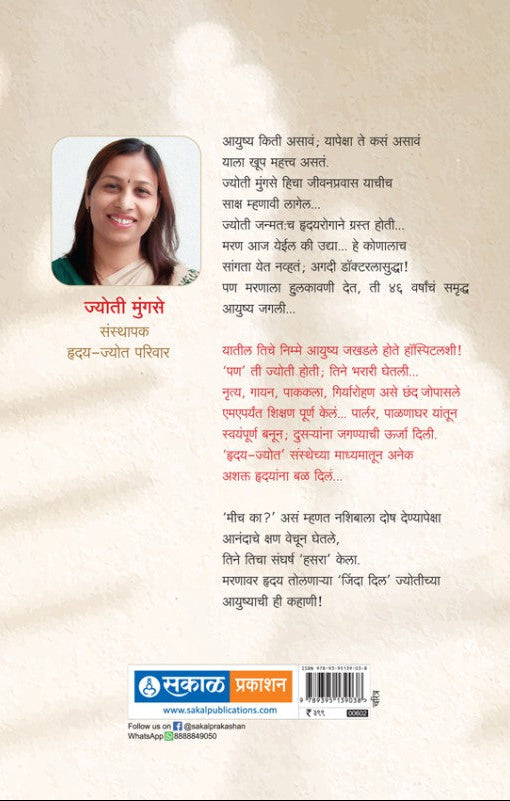 आयुष्य किती असावं; यापेक्षा ते कसं असावं
याला खूप महत्त्व असतं.
ज्योती मुंगसे हिचा जीवनप्रवास याचीच
साक्ष म्हणावी लागेल...
ज्योती जन्मत:च हृदयरोगाने ग्रस्त होती...
मरण आज येईल की उद्या... हे कोणालाच
सांगता येत नव्हतं; अगदी डॉक्टरलासुद्धा!
पण मरणाला हुलकावणी देत, ती ४६ वर्षांचं समृद्ध
आयुष्य जगली...
ज्योती मुंगसे
संस्थापक
हृदय-ज्योत परिवार
यातील तिचे निम्मे आयुष्य जखडले होते हॉस्पिटलशी!
‘पण’ ती ज्योती होती; तिने भरारी घेतली...
नृत्य, गायन, पाककला, गिर्यारोहण असे छंद जोपासले
एमएपर्यंत शिक्षण पूर्ण केलं... पार्लर, पाळणाघर यांतून
स्वयंपूर्ण बनून; दुसऱ्यांना जगण्याची ऊर्जा दिली.
‘हृदय-ज्योत’ संस्थेच्या माध्यमातून अनेक
अशक्त हृदयांना बळ दिलं...
‘मीच का?’ असं म्हणत नशिबाला दोष देण्यापेक्षा
आनंदाचे क्षण वेचून घेतले,
तिने तिचा संघर्ष ‘हसरा’ केला.
मरणावर हृदय तोलणाऱ्या ‘जिंदा दिल’ ज्योतीच्या
आयुष्याची ही कहाणी!
सकाळ प्रकाशन
www.sakalpublications.com
Follow us on @sakalprakashan
WhatsApp 8888849050
ISBN 978-93-95139-03-8
9 789395 139038
₹ ३९९
00602
चरित्र